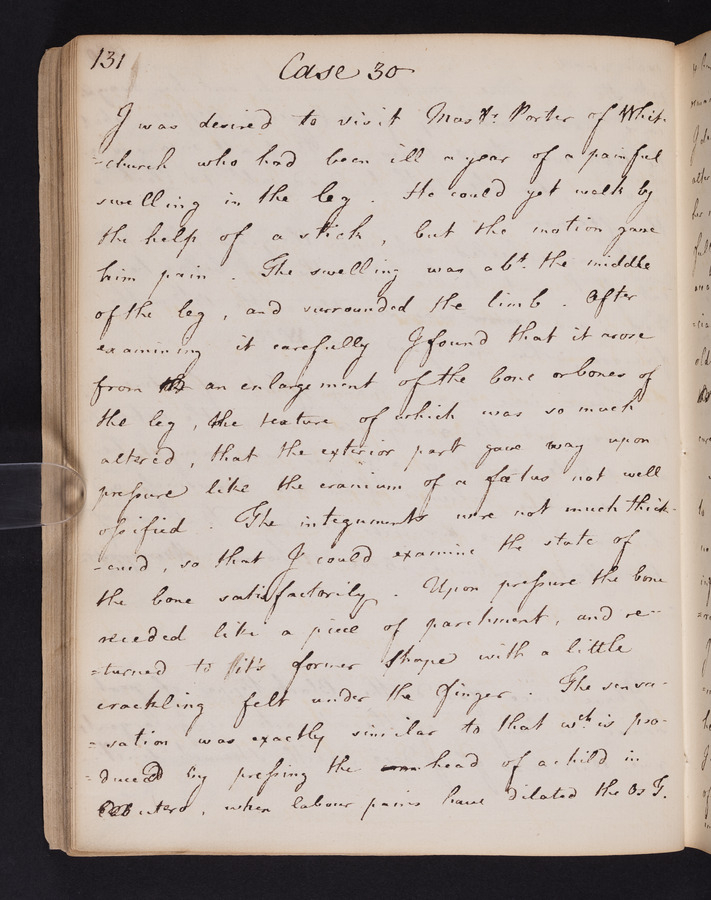 131
Case 30
I was desired to visit Mastr. Porter of Whit-
-church who had been ill a year of a painful
swelling in the leg. He could yet walk by
the help of a stick, but the motion gave
him pain. The swelling was abt. the middle
of the leg, and surrounded the limb. After
examining it carefully I found that it arose
from an enlargement of the bone or bones of
the leg, the texture of which was so much
altered, that the exterior part gave way upon
pressure like the cranium of a fœtus not well
ossified. The integuments were not much thick-
-ened, so that I could examine the state of
the bone satisfactorily. Upon pressure the bone
receeded like a piece of parchment, and re-
-turned to it's former shape with a little
crackling felt under the finger. The sensa-
-sation was exactly similar to that wch. is pro-
-duced by pressing the head of a child in
utero, when labour pains have dilated the Os T.